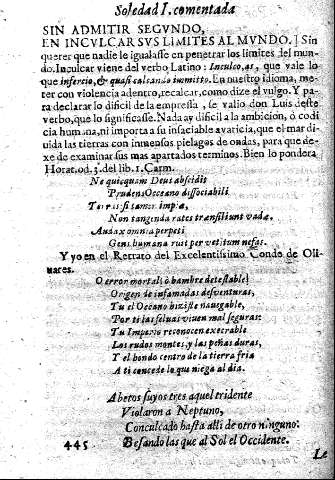 Soledad I. comentada
SIN ADMITIR SEGVNDO,
EN INCVLCAR SVS LIMITES AL MVNDO.] Sin
querer que nadie le igualasse en penetrar los limites del mun-
do. Inculcar viene del verbo Latino: Inculco, as, que vale lo
que infercio, & quasi calcando immitto. En nuestro idioma, me-
ter con violencia adentro, recalcar, como dize el vulgo. Y pa-
ra declarar lo dificil de la empressa, se valio don Luis deste
verbo, que lo significasse. Nada ay dificil a la ambicion, ò codi
cia humana, ni importa a su insaciable avaricia, que el mar di-
uida las tierras con inmensos pielagos de ondas, para que de-
xe de examinar sus mas apartados terminos. Bien lo pondera
Horat. od. 3. del lib. 1. Carm.
Ne quicquam Deus abscidit
Prudens Occeano dissociabili
Terras si tamen impiæ,
Non tangenda rates transiliunt vadæ.
Audax omnia perpeti
Gens humana ruit per vetitum nefas.
Y yo en el Retrato del Excelentissimo Conde de Oli-
uares.
O error mortal! ò hambre detestable!
Origen de infamadas desventuras,
Tu el Occeano hiziste nauegable,
Por ti las seluas viuen mal seguras:
Tu Imperio reconocen execrable
Los rudos montes, y las peñas duras,
Y el hondo centro de la tierra fria
A ti concede lo que niega al dia.
Abetos suyos tres aquel tridente
Violaron a Neptuno,
Conculcado hasta alli de otro ninguno:
Besando las que al Sol el Occidente.
445
Le